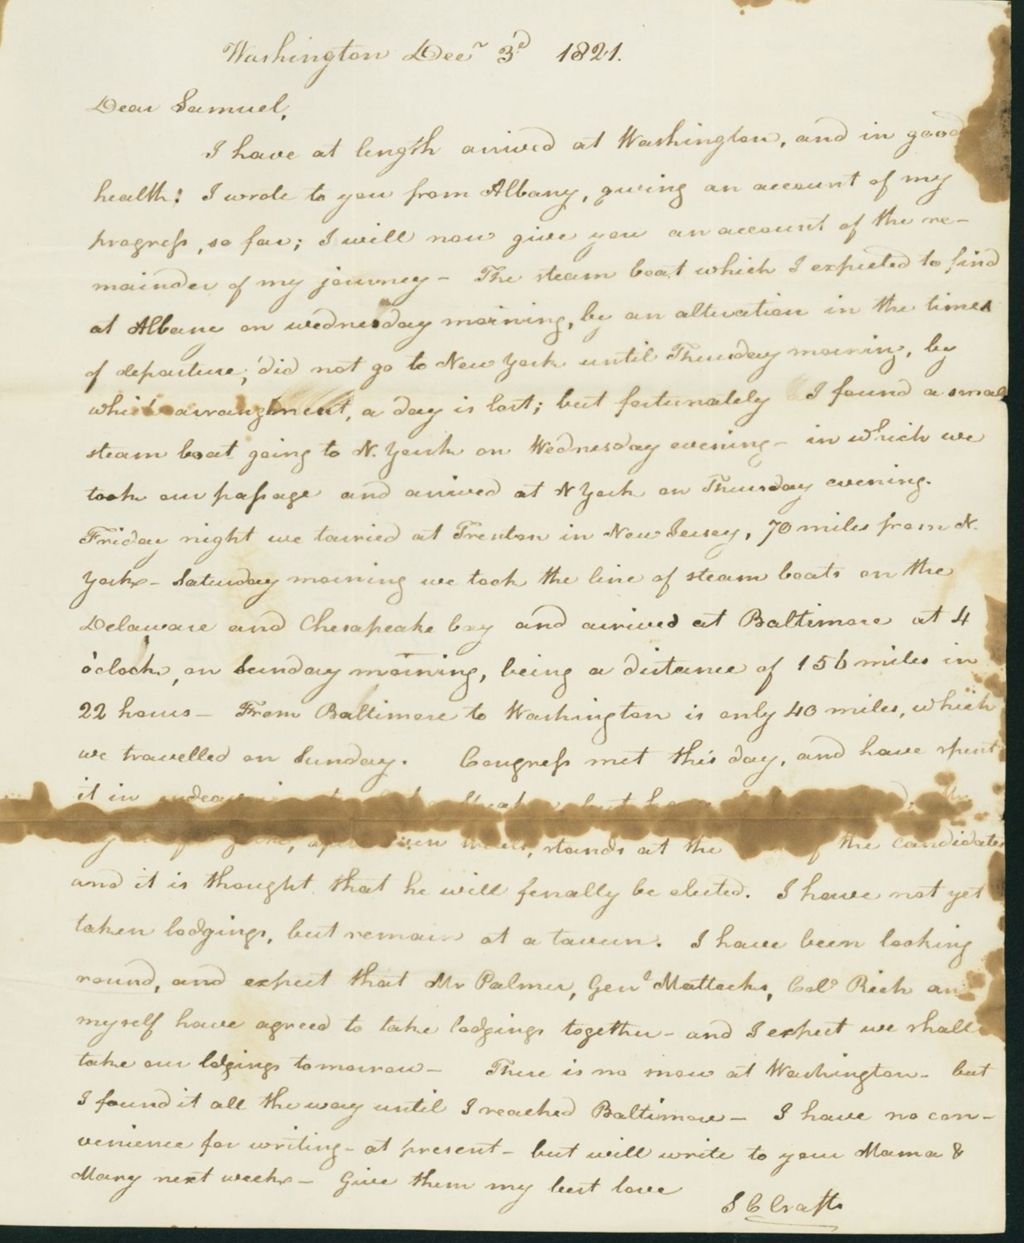 Washington Decr 3d 1821.
Dear Samuel,
I have at length arrived at Washington, and in good
health: I wrote to you from Albany, giving an account of my
progress, so far; I will now give you an account of the re-
mainder of my journey - The steam boat which I expected to find
at Albany on wednesday morning, by an alteration in the times
of departure, did not go to New York until Thursday morning, by
which arrangment, a day is lost; but fortunately I found a small
steam boat going to N. York on Wednesday evening - in which we
took our passage and arrived at N York on Thursday evening.
Friday night we tarried at Trenton in New Jersey, 70 miles from N.
York - Saturday morning we took the line of steam boats on the
Delaware and Chesapeake bay and arrived at Baltimore at 4
o'clock, on Sunday morning, being a distance of 156 miles in
22 hours - From Baltimore to Washington is only 40 miles, which
we travelled on Sunday. Congress met this day, and have spent
it in but
stands at the of the candidates
and it is thought that he will finally be elected. I have not yet
taken lodgings, but remain at a tavern. I have been looking
round, and expect that Mr Palmer, Genl Mattocks, Colo Rich and
myself have agreed to take lodgings together - and I expect we shall
take our lodgings tomorrow - There is no snow at Washington - but
I found it all the way until I reached Baltimore - I have no con-
venience for writing - at present - but will write to your Mama &
Mary next week - Give them my best love
S C Crafts